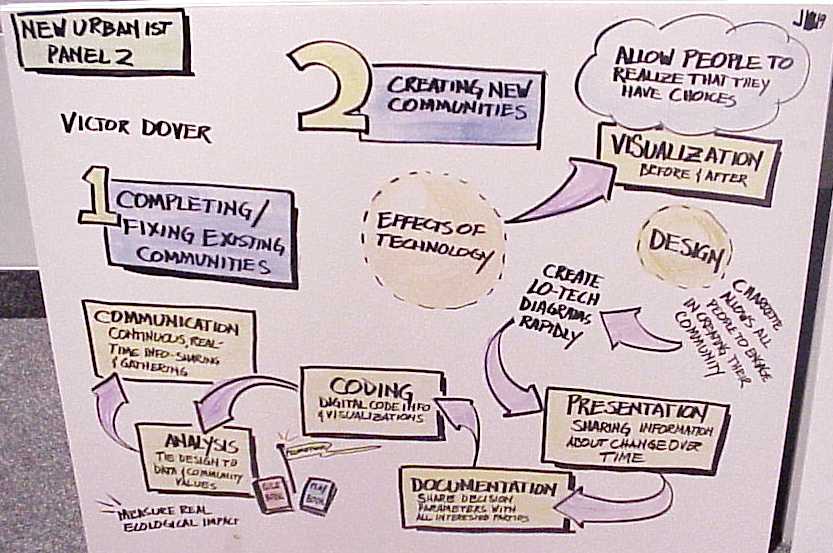 NEW URBANIST
PANEL 2
VICTOR DOVER
1
COMPLETING/
FIXING EXISTING
COMMUNITIES
2
CREATING NEW
COMMUNITIES
ALLOW PEOPLE TO
REALIZE THAT THEY
HAVE CHOICES
VISUALIZATION
BEFORE & AFTER
EFFECTS OF
TECHNOLOGY
DESIGN
CHARRETTE
ALLOWS ALL
PEOPLE TO ENGAGE
IN CREATING THEIR
COMMUNITY
CREATE
LO-TECH
DIAGRAMS
RAPIDLY
PRESENTATION
SHARING INFORMATION
ABOUT CHANGE OVER
TIME
DOCUMENTATION
SHARE DECISION
PARAMETERS WITH
ALL INTERESTED PARTIES
CODING
DIGITAL CODE INFO
& VISUALIZATIONS
ANALYSIS
TIE DESIGN TO
DATA & COMMUNITY
VALUES
COMMUNICATION
CONTINUOUS, REAL-
TIME INFO-SHARING
& GATHERING
BOOK
BOOK
MEASURE REAL
ECOLOGICAL IMPACT